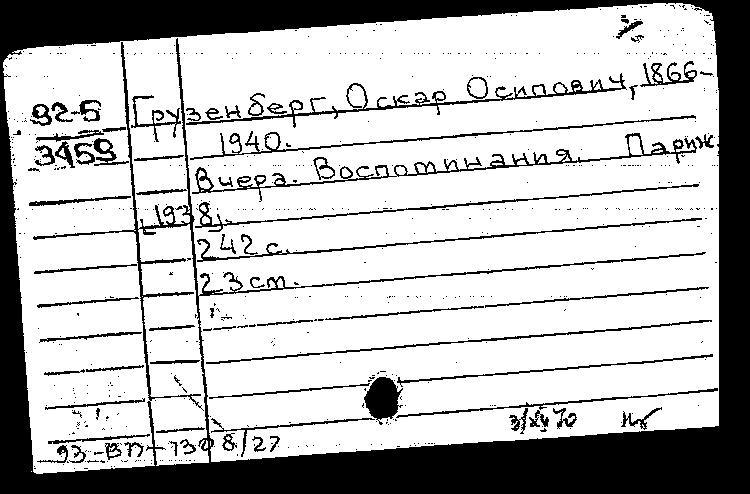 92-5
3459
Грузенберг, Оскар Осипович, 1866-
1940.
Вчера. Воспоминания. Париж.
[1938].
242 с.
23 ст.
93-ВП-1308/27